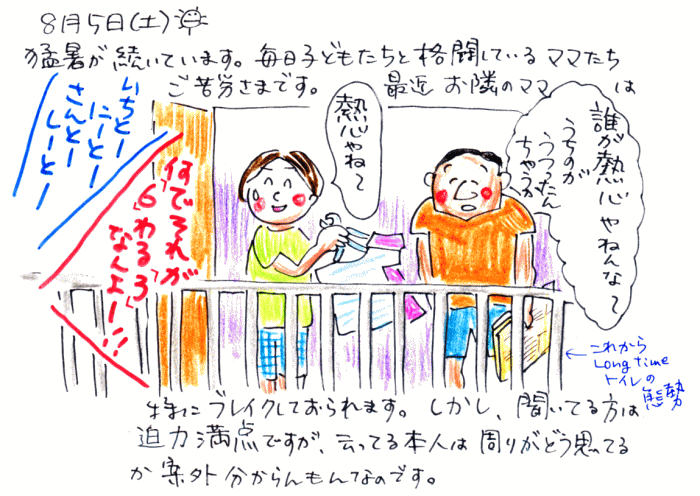 8月5日(土)
猛暑が続いています。毎日子どもたちと格闘しているママたち
ご苦労さまです。 最近お隣のママ は
いちとー
にーとー
さんとー
しーとー
何でそれが
「6」わる「3」
なんよー!!
熱心やね〜
誰が熱心やねんな〜
うちのが
うつったん
ちゃうか
これから
Long time
トイレの
態勢
特にブレイクしておられます。しかし、聞いてる方は
迫力満点ですが、云ってる本人は周りがどう思ってる
か案外分からんもんなのです。